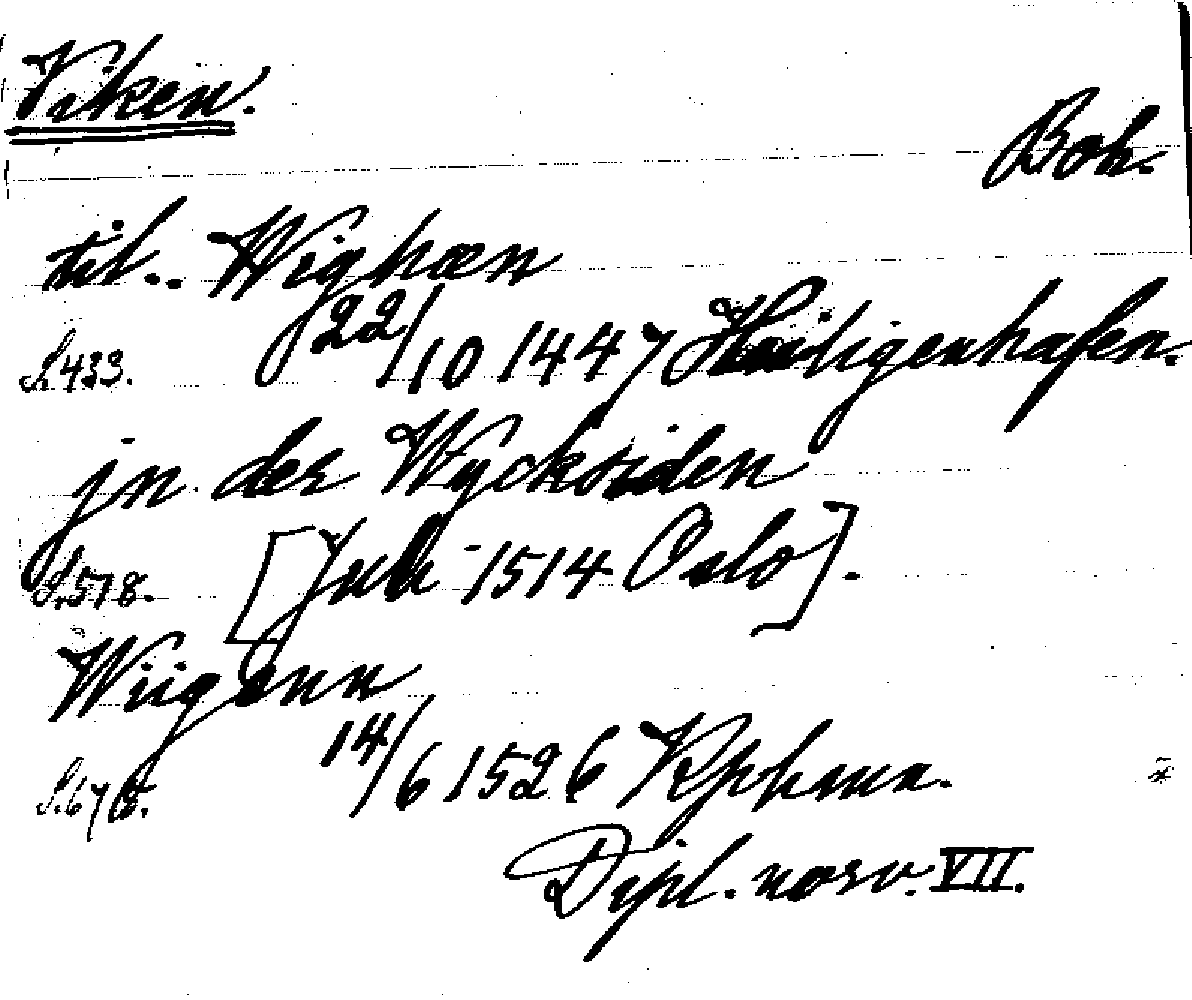 Viken.
Boh.
til.. Wighæn
S. 433. 22/10 1447 Heiligenhafen.
jn der Wycksiden
S. 578. [Juli 1514 Oslo].
Wiigenn
S. 676. 14/6 1526 Kphmn.
Dipl. norv. VII.